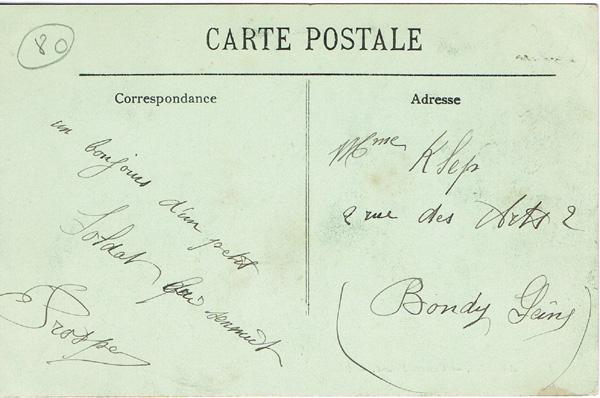 80
CARTE POSTALE
Correspondance
un bonjours d'un petit
Soldat qui
Adresse
Mme Klep
2 rue des Arts 2
Bondy Seine